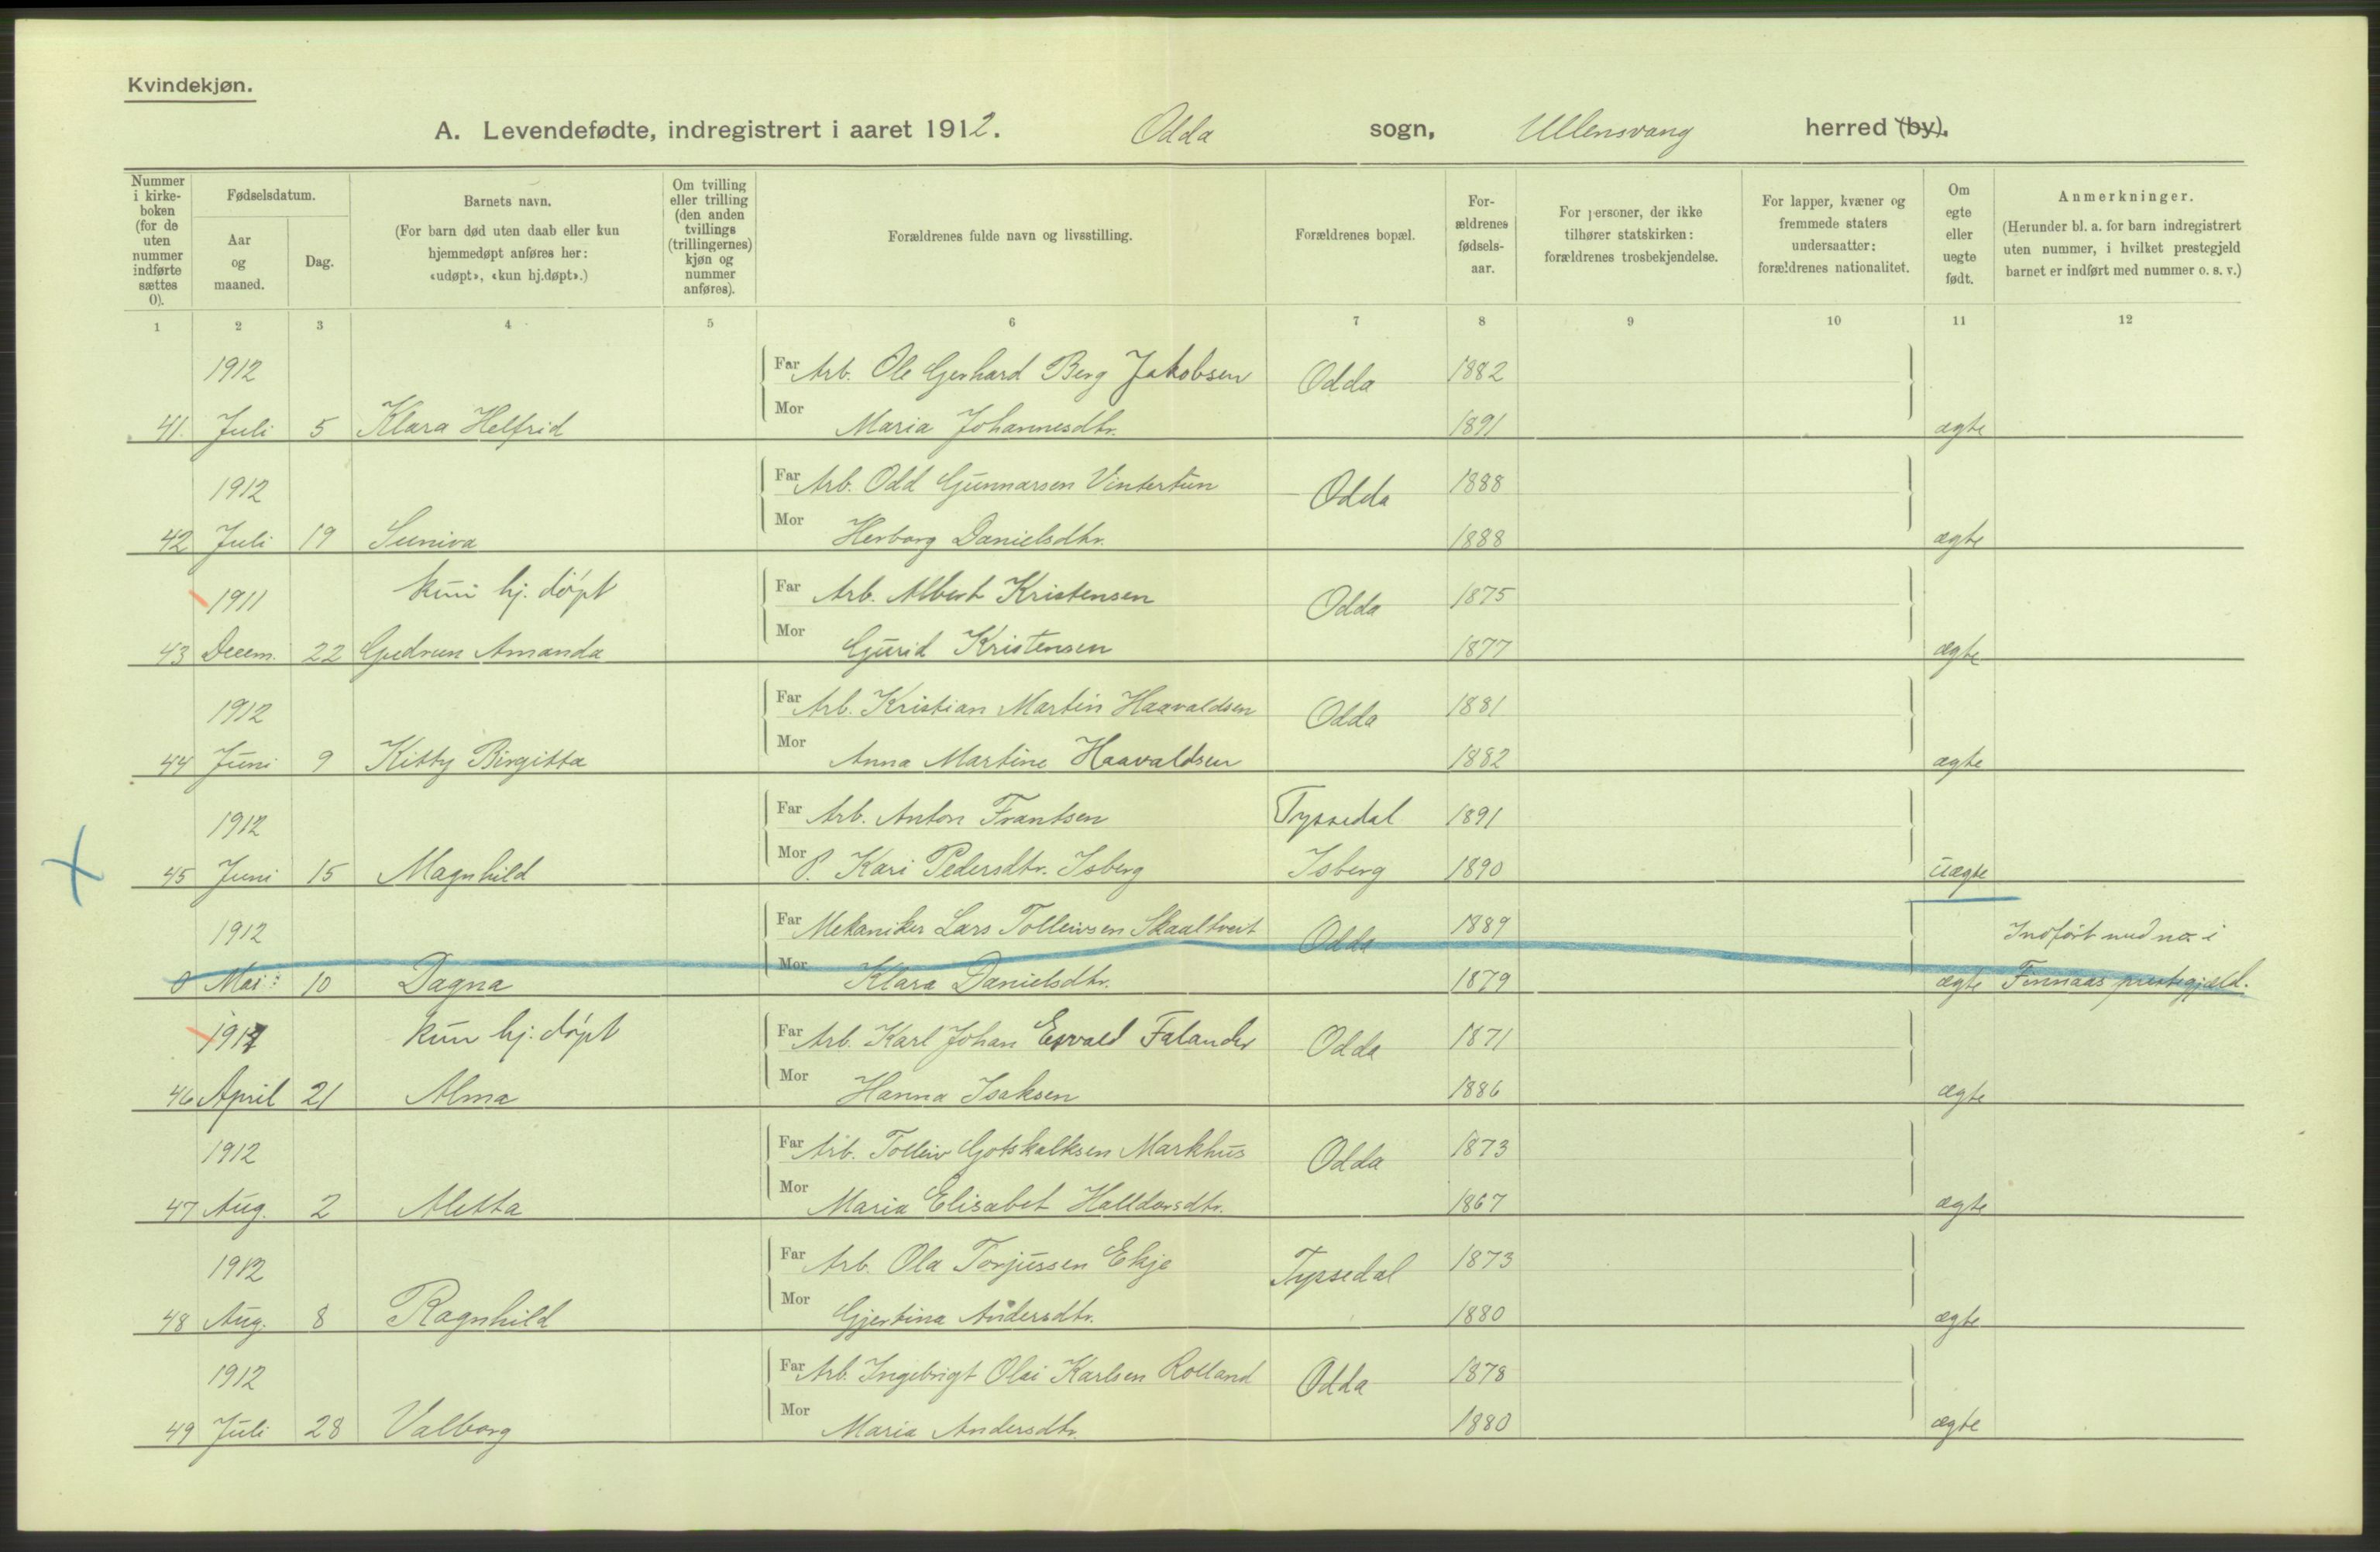 Kvindekjøn.
A. Levendefødte, indregistrert i aaret 1912. Odda sogn, Ullensvang herred (by).
Nummer i kirke-boken (for de uten nummer indførte sættes 0).
Fødselsdatum.
Aar og maaned.
Dag.
Barnets navn.
(For barn død uten daab eller kun hjemmedøpt anføres her: «udøpt», «kun hj.døpt».)
Om tvilling eller trilling (den anden tvillings (trillingernes) kjøn og nummer anføres).
Forældrenes fulde navn og livsstilling.
Forældrenes bopæl.
For-ældrenes fødsels-aar.
For personer, der ikke tilhører statskirken: forældrenes trosbekjendelse.
For lapper, kvæner og fremmede staters undersaatter: forældrenes nationalitet.
Om egte eller uegte født.
Anmerkninger.
(Herunder bl. a. for barn indregistrert uten nummer, i hvilket prestegjeld barnet er indført med nummer o. s. v.)
1 2 3 4 5 6 7 8 9 10 11 12
1912 Far Arb. Ole Gerhard Berg Jakobsen Odda 1882
41. Juli 5 Klara Helfrid Mor Maria Johannesdtr. 1891 ægte
1912 Far Arb. Odd Gunnarsen Vintertun Odda 1888
42 Juli 19 Suniva Mor Herborg Danielsdtr. 1888 ægte
1911 kun hj. døpt Far Arb. Albert Kristensen Odda 1875
43 Decem. 22 Gudrun Amanda Mor Gurid Kristensen 1877 ægte
1912 Far Arb. Kristian Martin Haavaldsen Odda 1881
44 Juni 9 Kitty Birgitta Mor Anna Martine Haavaldsen 1882 ægte
1912 Far Arb. Anton Frantsen Tyssedal 1891
45 Juni 15 Magnhild Mor P. Kari Pedersdtr. Isberg Isberg 1890 uægte
1912 Far Mekaniker Lars Tolleivsen Skaaltveit Odda 1889 Indført med no i
0 Mai 10 Dagna Mor Klara Danielsdtr. 1879 ægte Finnaas prestegjæld.
1912 kun hj. døpt Far Arb. Karl Johan Esvald Falander Odda 1871
46 April 21 Alma Mor Hanna Isaksen 1886 ægte
1912 Far Arb. Tolleiv Gotskalksen Markhus Odda 1873
47 Aug. 2 Aletta Mor Maria Elisabet Halldorsdtr. 1867 ægte
1912 Far Arb. Ola Torjussen Ekje Tyssedal 1873
48 Aug. 8 Ragnhild Mor Gjertina Andersdtr. 1880 ægte
1912 Far Arb. Ingebrigt Olai Karlsen Rolland Odda 1878
49 Juli 28 Valborg Mor Maria Andersdtr. 1880 ægte